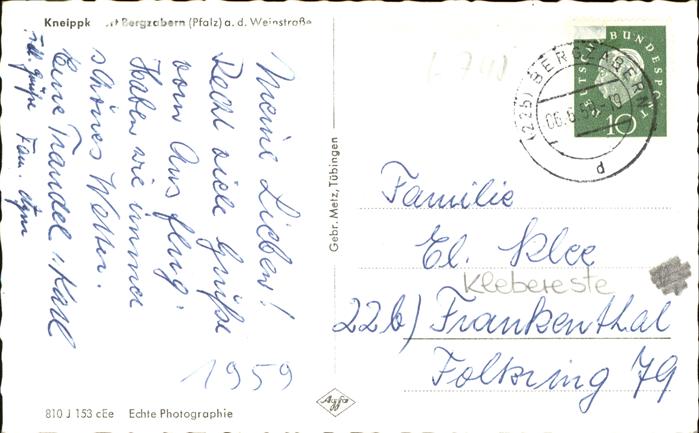 Kneippk Bergzabern (Pfalz) a. d. Weinstraße
Meine Lieben!
Recht viele Grüße
vom Ausflug.
Haben wir immer
schönes Wetter.
Eure Trandel u. Karl
Grüße Fam.
1959
810 J 153 cEe Echte Photographie
Gebr. Metz, Tübingen
Agfa
DEUTSCHE BUNDESPOST
10
(22b) BERGZABERN
06.6.59.-10
d
Familie
El. Klee
Klebereste
22b) Frankenthal
Foltzring 79